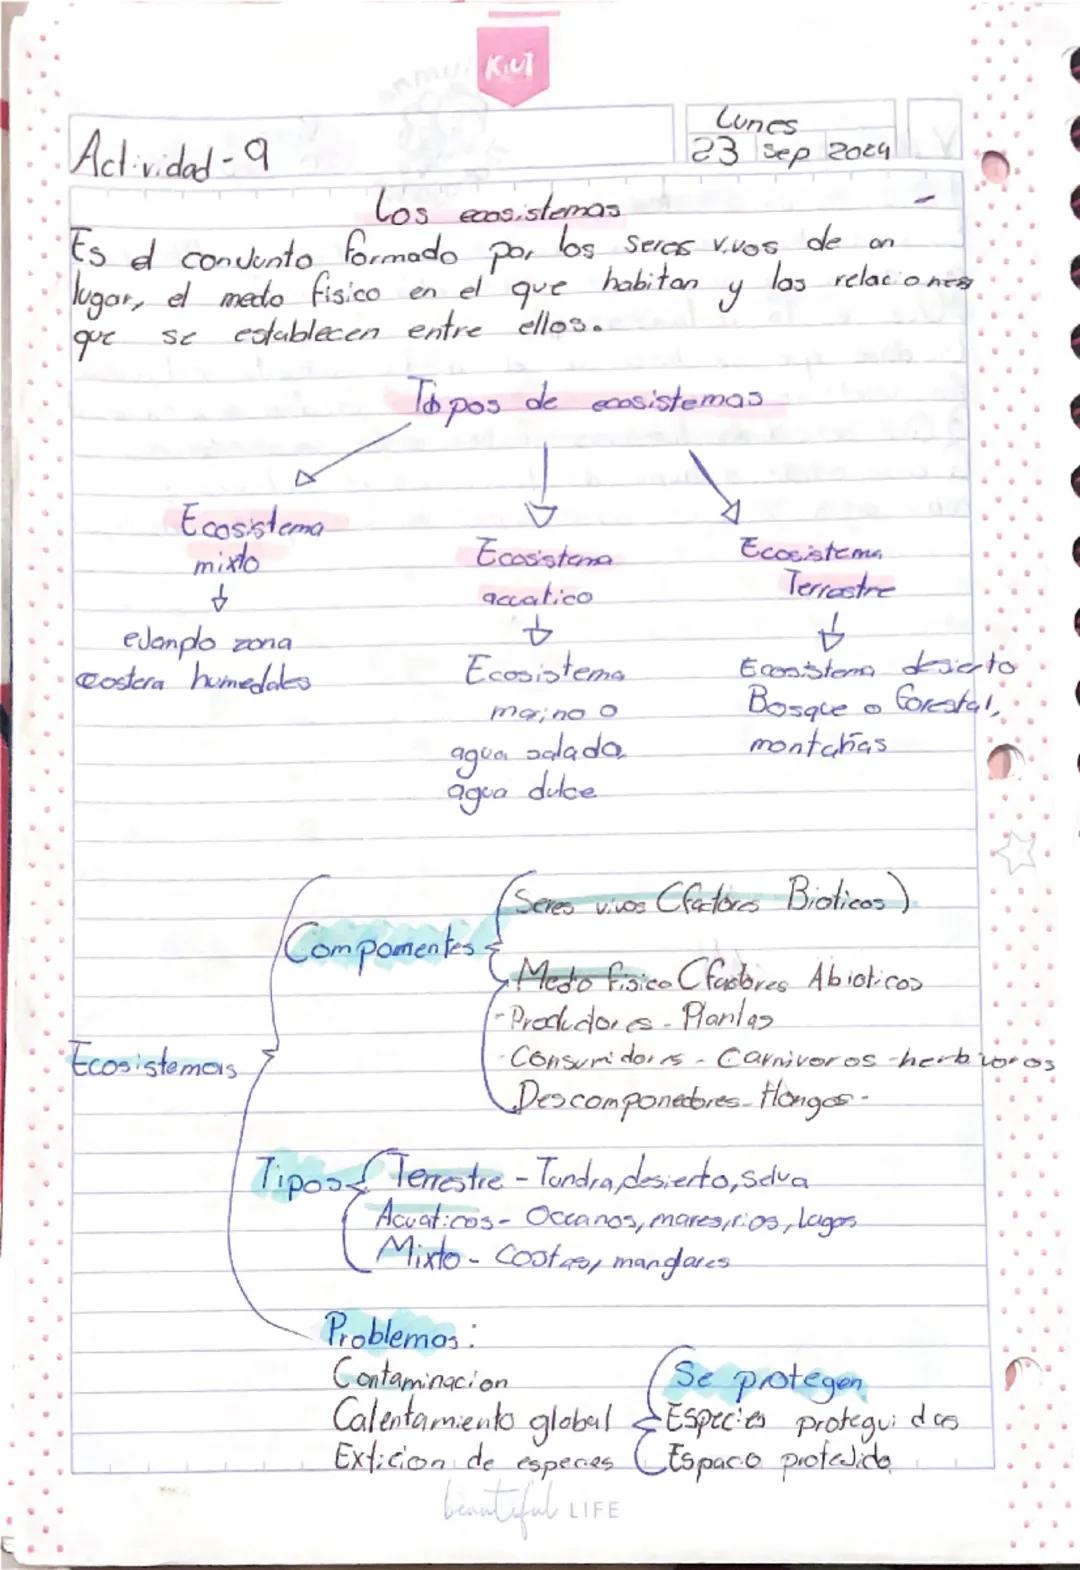 KIUT
Lunes
Actividad-9
23 sep 2024
Los ecosistemas
Es el conJunto formado por los seres vivos de un
lugar, el medo fisico en el que habitan y las relaciones
que se establecen entre ellos.
Tipos de ecosistemas
Ecosistema
mixto
eJemplo zona
costera humedales
Ecosistema
acuatico
Ecosistema
marino o
agua salada
agua dulce
Ecosistema
Terrestre
Ecosistema desierto
Bosque o forestal,
montañas
Ecosistemas
Compomentes
Seres vivos (factores Bioticos)
Medo fisico (factores Abioticos
-Productores - Plantas
-Consumidores - Carnivoros -herbivoros
Descomponedores - Hongos -
Tipos
Terrestre - Tundra, desierto, selva
Acuaticos - Oceanos, mares, rios, lagos
Mixto - Costas, manglares
Problemas:
Contaminacion
Calentamiento global
Exticion de especies
Se protegen
Especies protegui das
Espacio proteJido
beautiful LIFE